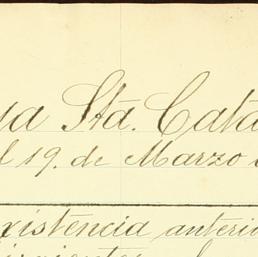 ua Sta. Cata
l 19. de Marzo
xistencia anterio